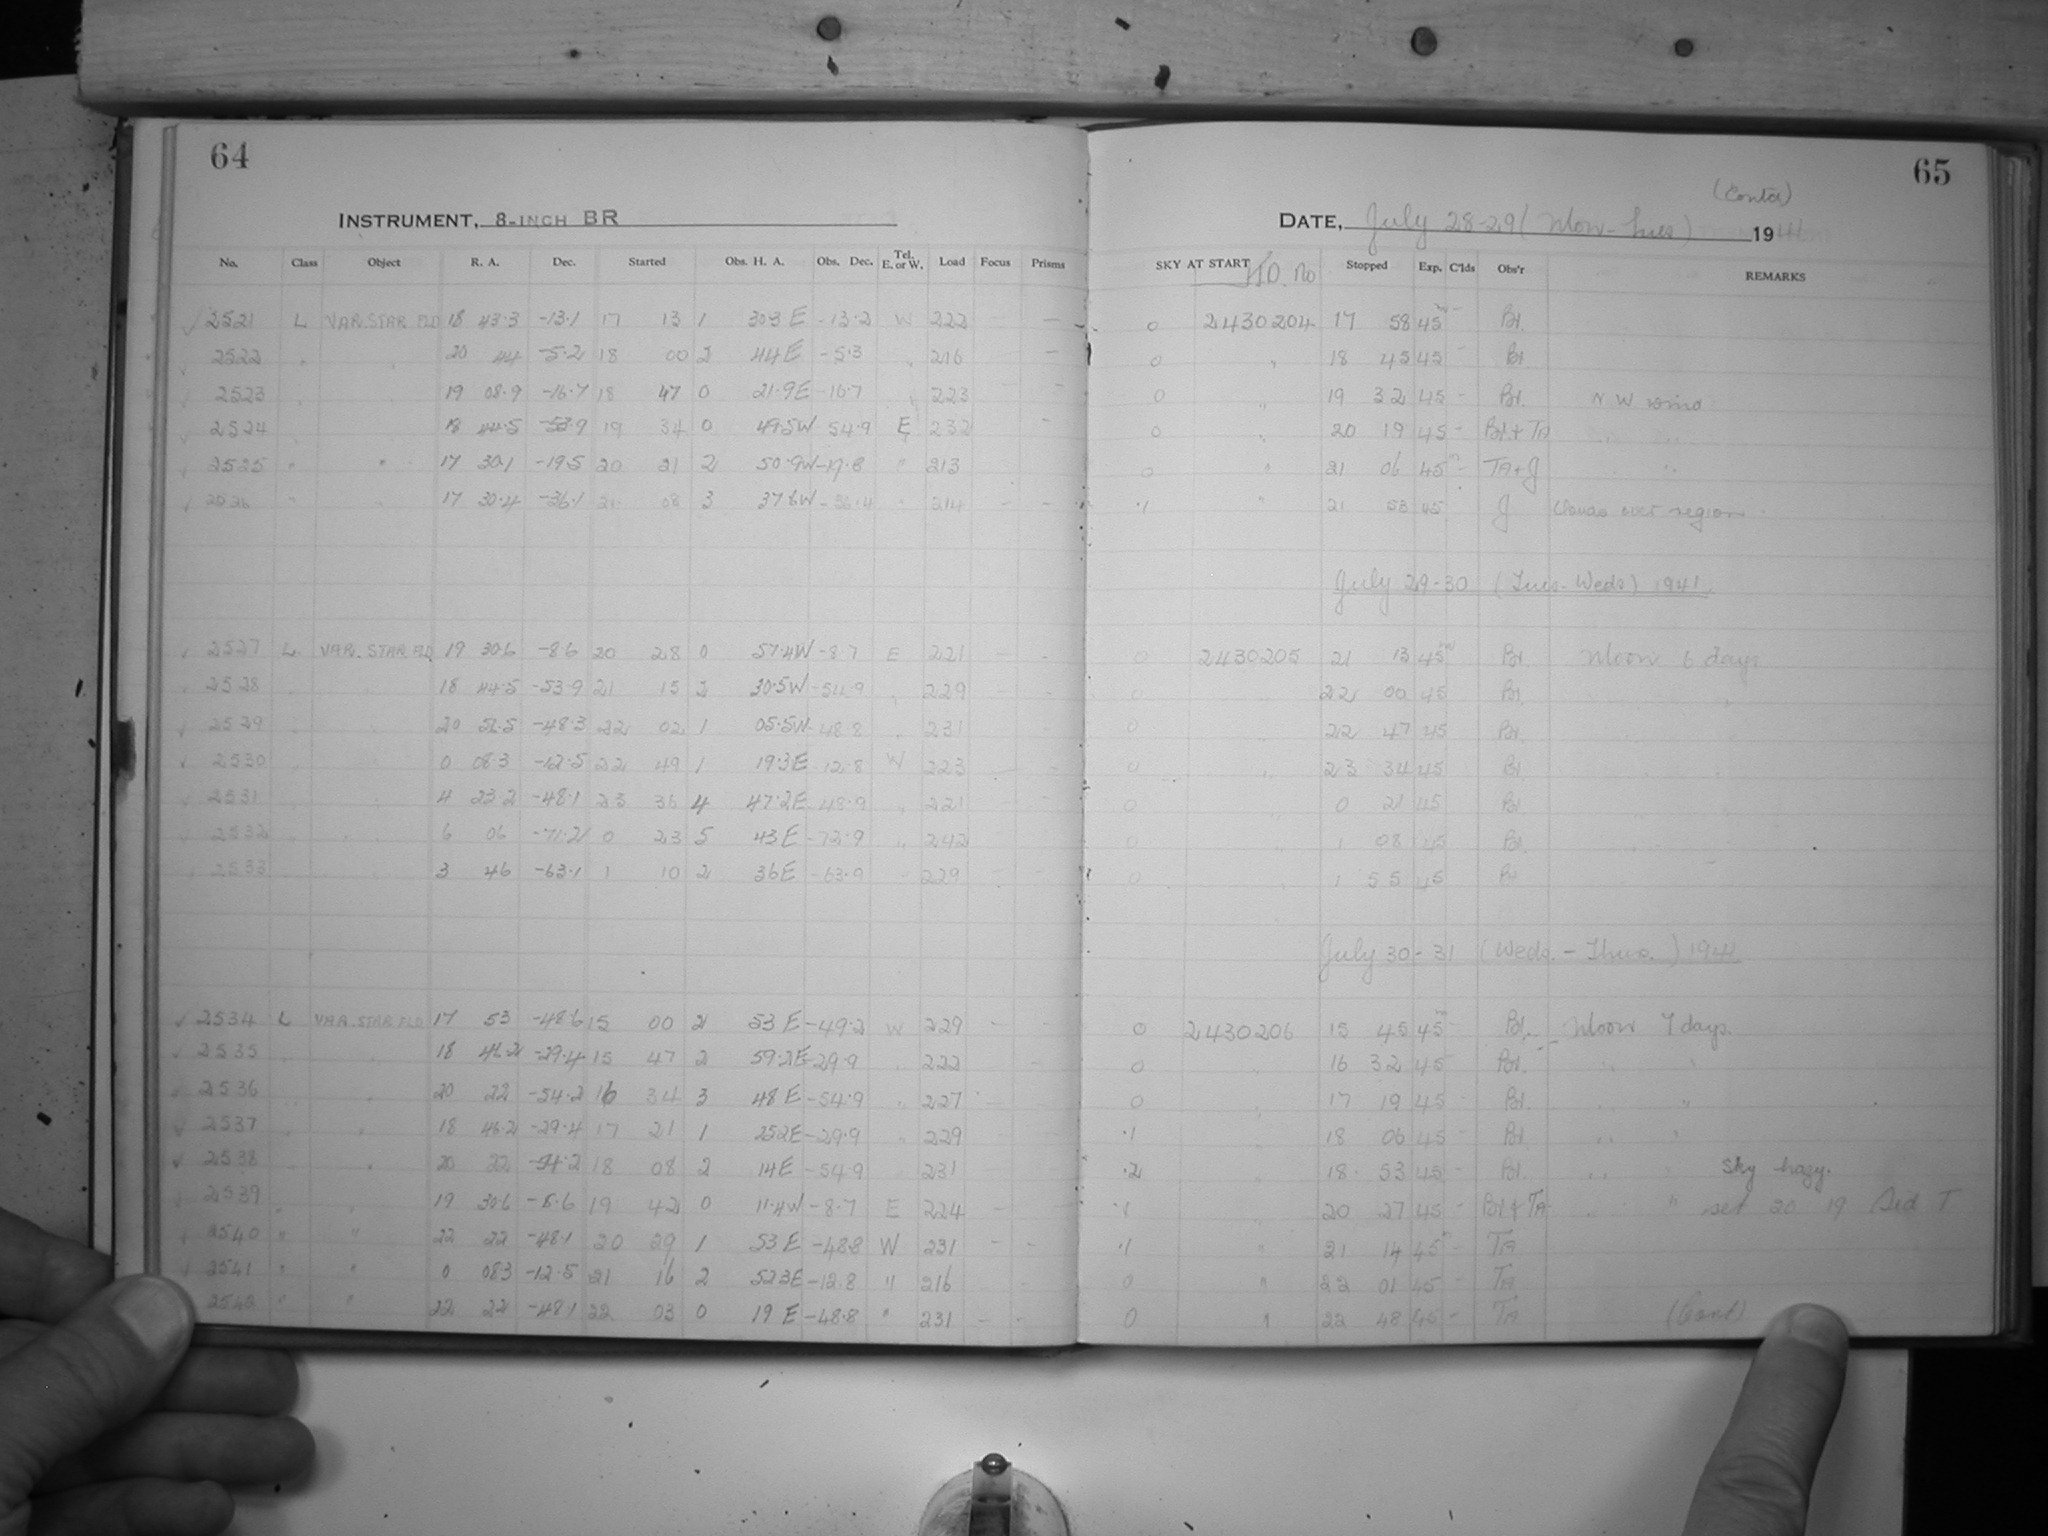 64
INSTRUMENT, 8-INCH BR
No. Class Object R. A. Dec. Started Obs. H. A. Obs. Dec. Tel. E. or W. Load Focus Prisms
2521 L VAR. STAR FLD 18 43.3 -13.1 17 13 1 30.3 E -13.2 W 222 - -
2522 " " 20 44 -5.2 18 00 2 44 E -5.3 " 216 -
2523 19 08.9 -16.7 18 47 0 21.9E -16.7 " 223 -
2524 18 44.5 -53.9 19 34 0 49.5W 54.9 E 232 -
2525 " " 17 30.1 -19.5 20 21 2 50.9W -19.8 " 213
2526 " " 17 30.4 -36.1 21 08 3 37.6W -36.4 " 214 - -
2527 L VAR. STAR FLD 19 30.6 -8.6 20 28 0 57.4W -8.7 E 221 - -
2528 18 44.5 -53.9 21 15 2 30.5W -54.9 " 229
2529 20 51.5 -48.3 22 02 1 05.5W -48.8 " 231
2530 0 08.3 -12.5 22 49 1 19.3E 12.8 W 223
2531 4 23.2 -48.1 23 36 4 47.2E 48.9 " 221
2532 6 06 -71.2 0 23 5 43 E -72.9 " 242
2533 3 46 -63.1 1 10 2 36E -63.9 229
2534 L VAR. STAR FLD 17 53 -48.6 15 00 2 53 E -49.2 W 229 - -
2535 18 46.2 -29.4 15 47 2 59.2E -29.9 222
2536 20 22 -54.2 16 34 3 48 E -54.9 " 227
2537 " " 18 46.2 -29.4 17 21 1 25.2E -29.9 " 229
2538 " " 20 22 -54.2 18 08 2 14E -54.9 231
2539 " " 19 30.6 -8.6 19 42 0 11.4W -8.7 E 224 - -
2540 " " 22 22 -48.1 20 29 1 53 E -48.8 W 231 - -
2541 " " 0 08.3 -12.5 21 16 2 52.3E -12.8 " 216 -
2542 " " 22 22 -48.1 22 03 0 19 E -48.8 " 231 - -
65
(Contd)
DATE, July 28-29 (Mon-Tues) 1941
SKY AT START J.D. No Stopped Exp. C'lds Obs'r REMARKS
0 2430204 17 58 45m - Bl.
0 " 18 45 45 - Bl
0 " 19 32 45 - Bl. N W wind
0 " 20 19 45 - Bl + TA " "
0 " 21 06 45m - TA + J "
.1 " 21 53 45 J Clouds over region.
July 29-30 (Tues-Weds) 1941.
0 2430205 21 13 45m Bl. Moon 6 days
0 " 22 00 45 Bl.
0 " 22 47 45 Bl.
0 " 23 34 45 Bl.
0 " 0 21 45 Bl
0 " 1 08 45 Bl.
0 " 1 55 45 Bl
July 30-31 (Weds. - Thurs.) 1941
0 2430206 15 45 45m Bl. Moon 7 days.
0 " 16 32 45 Bl. " "
0 " 17 19 45 - Bl. " "
.1 " 18 06 45 - Bl. " "
.2 18 53 45 - Bl. " " Sky hazy.
.1 " 20 27 45 - Bl & TA " " set 20 19 Sid T
.1 " 21 14 45m - TA
0 " 22 01 45 - TA
0 " 22 48 45 - TA (Cont)